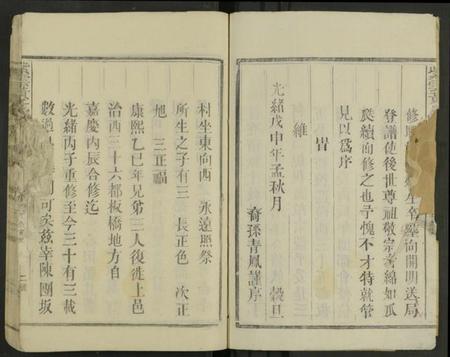 生名
坐向開明送局
登譜使後世尊祖敬宗者綿如瓜
瓞續向修之也予愧不才特就管
見以為序
冑
維
光緒戊申年孟秋月　穀旦
裔孫青鳳謹序
利坐東向西　永遠照祭
所生之子有三　長正色　次正
旭　三正福
康熙乙巳年兄弟三人復徙上邑
治西三十六都板橋地方自
嘉慶丙辰合修迄
光緒丙子重修至今三十有三載
數過
可矣茲宰陳團坂